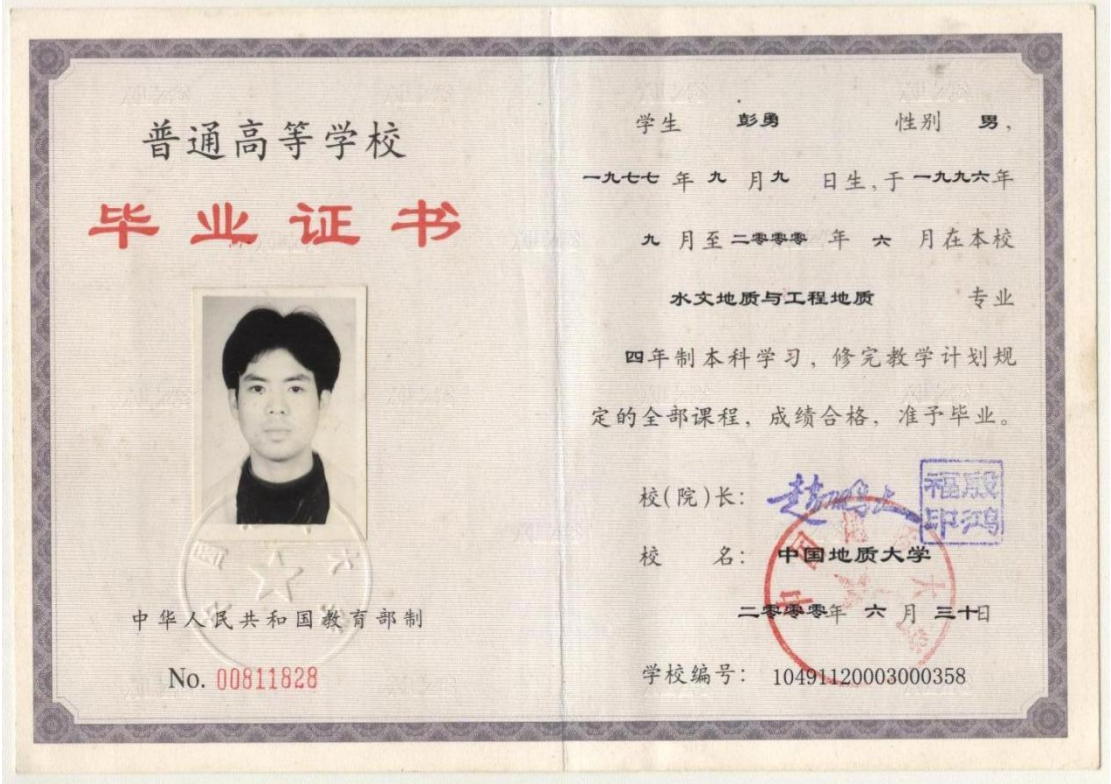 普通高等学校
毕业证书
中华人民共和国教育部制
No. 00811828
学生 彭勇 性别 男，
一九七七年九月九日生，于一九九六年
九月至二零零零年六月在本校
水文地质与工程地质 专业
四年制本科学习，修完教学计划规
定的全部课程，成绩合格，准予毕业。
校(院)长：
殷鸿福印
校 名：中国地质大学
二零零零年六月三十日
学校编号：10491120003000358